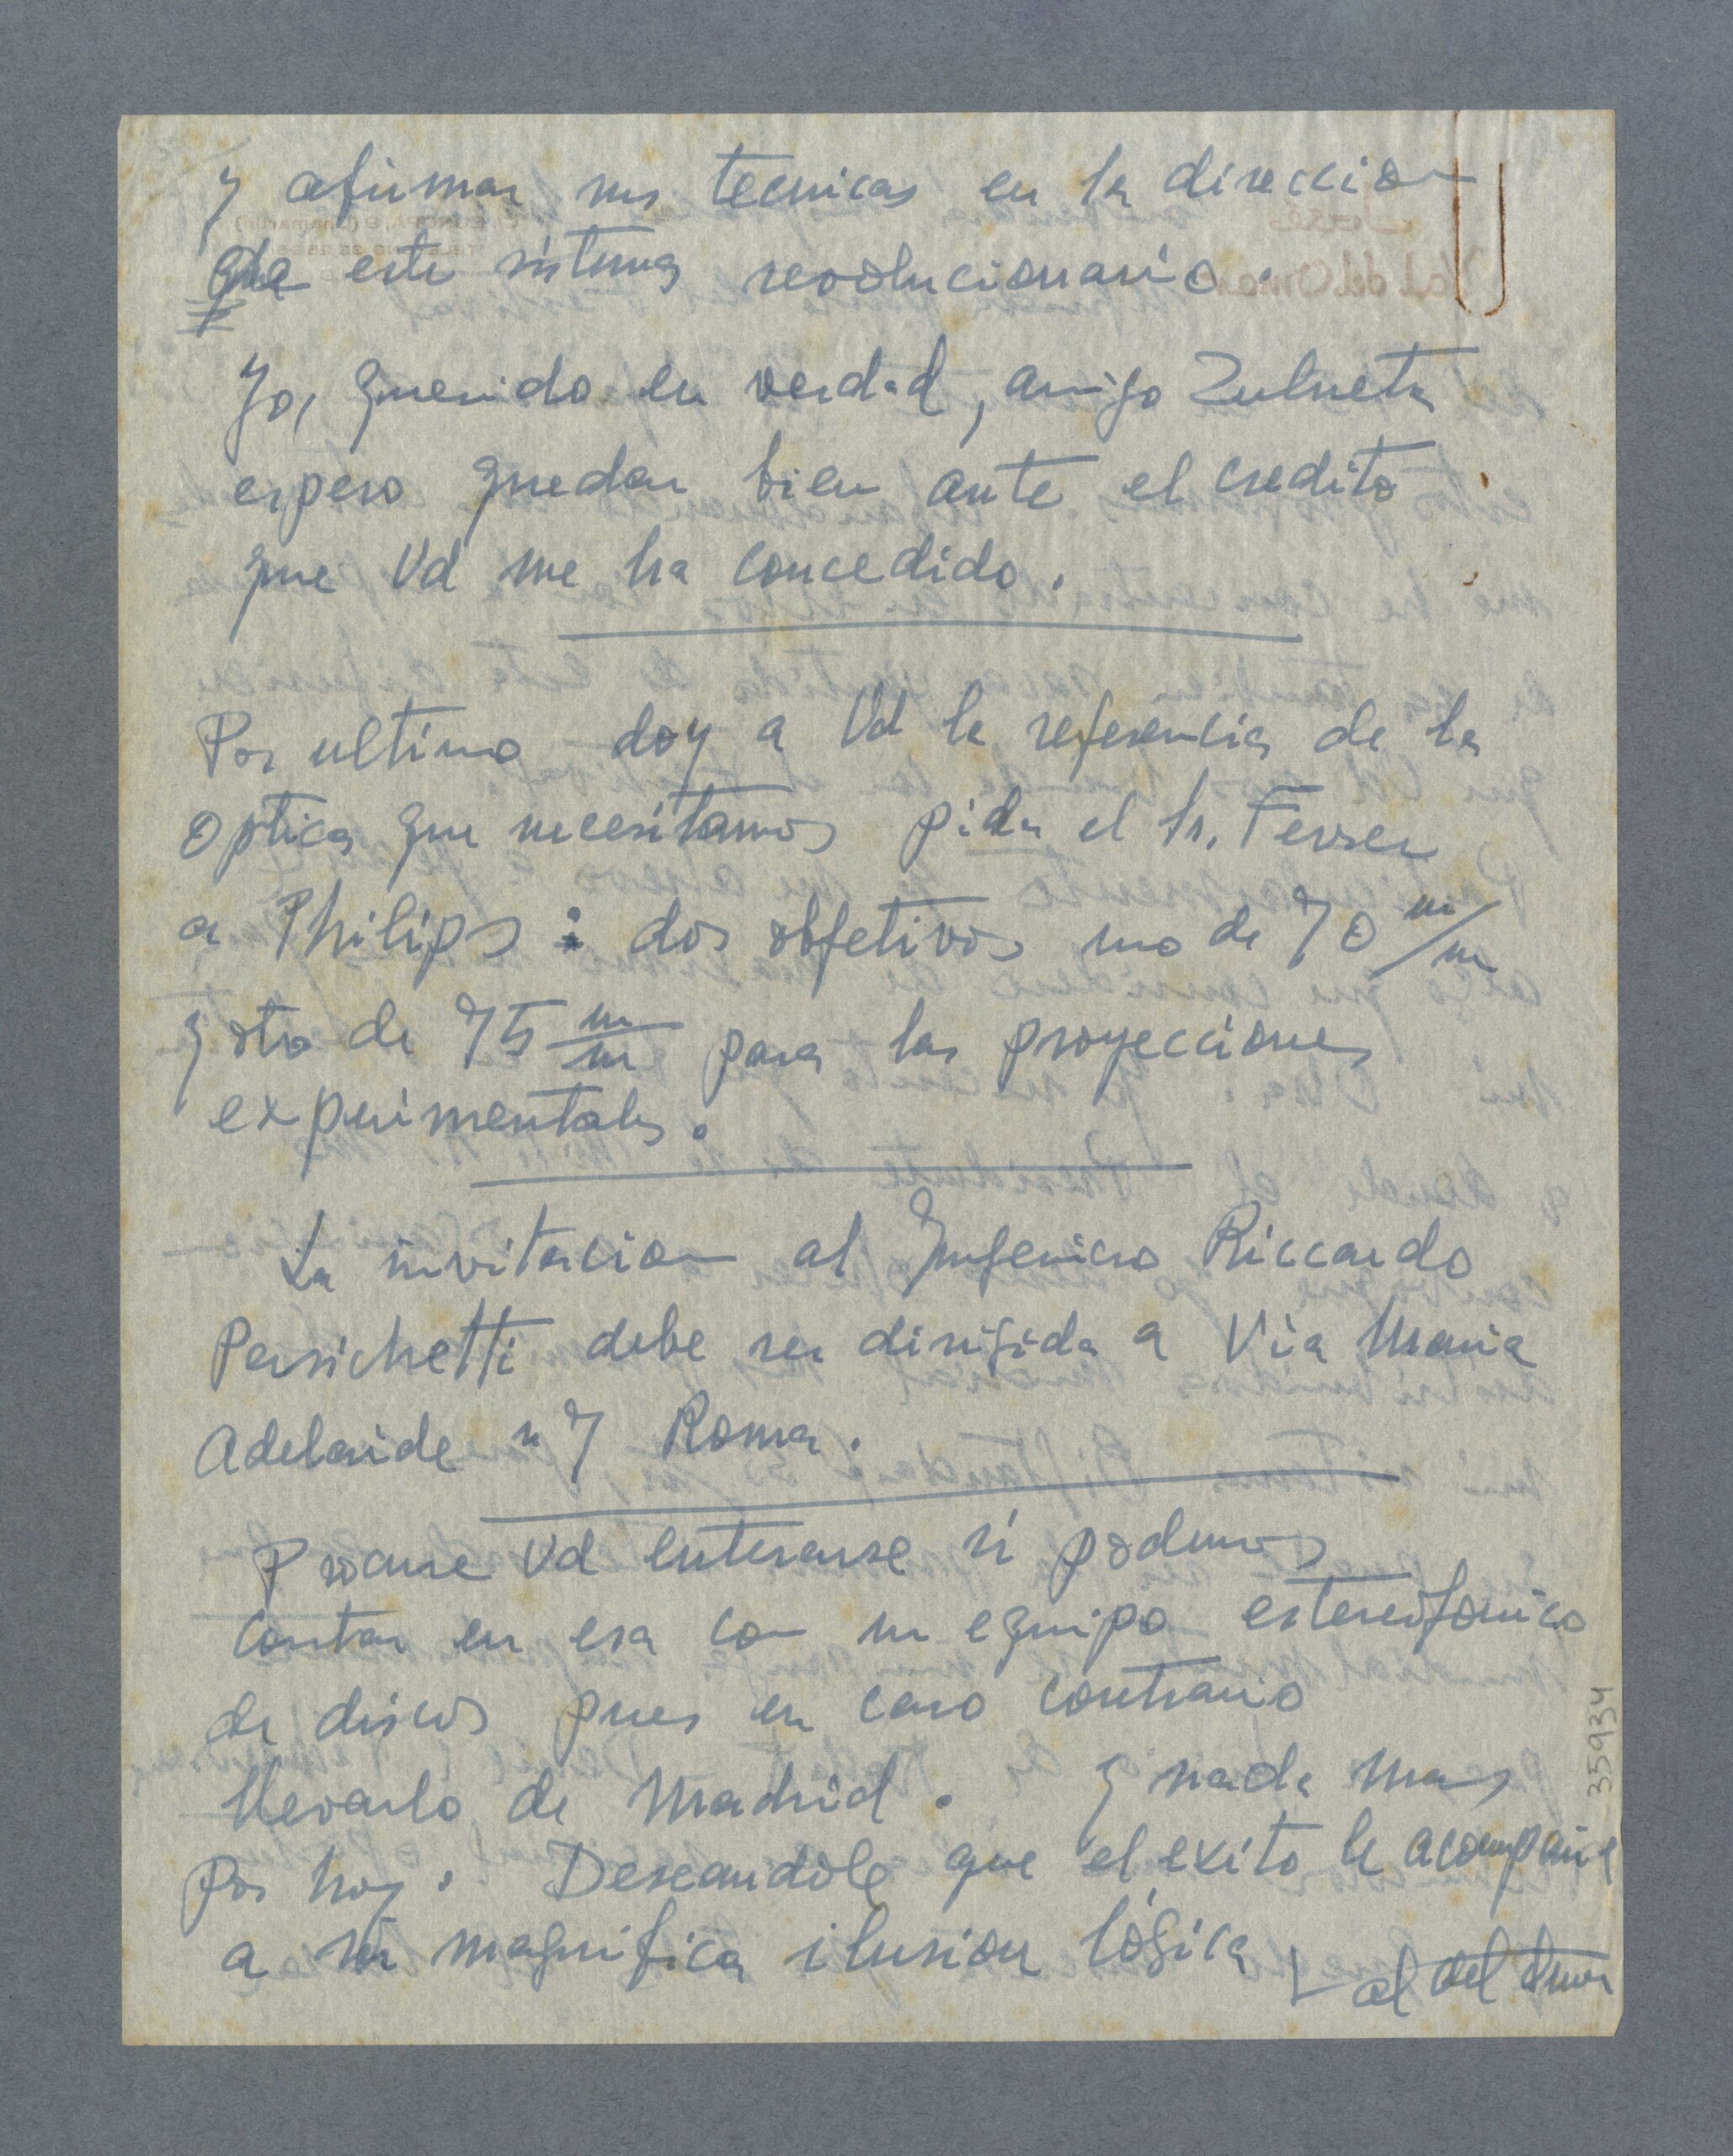 y afirmar sus tecnicas en la direccion
de este sistema revolucionario.
Yo, querido en verdad, amigo Zulueta
espero quedar bien ante el credito
que Vd me ha concedido.
Por ultimo doy a Vd la referencia de la
optica que necesitamos pida el Sr. Ferrer
a Philips: dos objetivos uno de 70 m/m
y otro de 75 m/m para las proyecciones
experimentales.
La invitacion al Ingeniero Riccardo
Persichetti debe ser dirigida a Via Maria
Adelaide n 7 Roma.
Procure Vd enterarse si podemos
contar en esa con un equipo estereofonico
de discos pues en caso contrario
llevarlo de Madrid. Y nada mas
por hoy. Deseandole que el exito le acompañe
a su magnifica ilusion lógica Val del Omar
35934